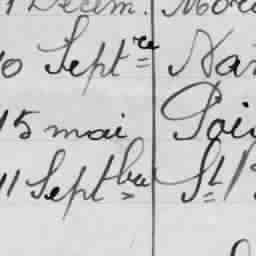 1 Décem. Mor
10 Septre Nan
15 mai Poi
11 Septbre St P